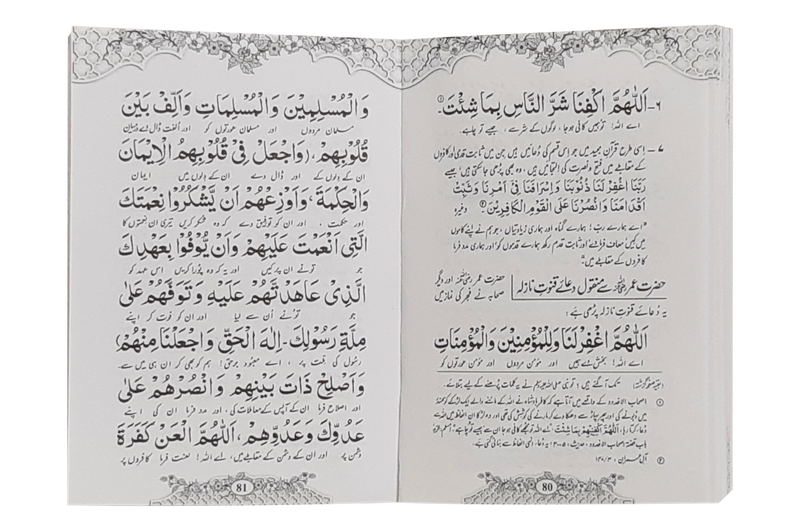 ۶- اَللّٰهُمَّ اكْفِنَا شَرَّ النَّاسِ بِمَا شِئْتَ۔ ①
اے اللہ! تو ہمیں کافی ہو جا، لوگوں کے شر سے، جیسے تو چاہے۔
۷- اسی طرح قرآن مجید میں جو اس قسم کی دعائیں ہیں جن میں ثابت قدمی اور کافروں
کے مقابلے میں فتح و نصرت کی التجائیں ہیں، وہ بھی پڑھی جا سکتی ہیں! جیسے
رَبَّنَا اغْفِرْ لَنَا ذُنُوْبَنَا وَاِسْرَافَنَا فِیْ اَمْرِنَا وَثَبِّتْ
اَقْدَامَنَا وَانْصُرْنَا عَلَی الْقَوْمِ الْکَافِرِیْنَ ② وغیرہ
"اے ہمارے رب! ہمارے گناہ اور ہماری زیادتیاں، جو ہم نے اپنے کاموں
میں کیں، معاف فرما دے اور ثابت قدم رکھ ہمارے قدموں کو اور ہماری مدد فرما
کافروں کے مقابلے میں"
حضرت عمر رضی اللہ عنہ سے منقول دعائے قنوت نازلہ
حضرت عمر رضی اللہ عنہ اور دیگر
صحابہ نے فجر کی نماز میں
یہ دعائے قنوت نازلہ پڑھی ہے:
اَللّٰهُمَّ اغْفِرْ لَنَا وَلِلْمُؤْمِنِیْنَ وَالْمُؤْمِنَاتِ
اے اللہ! بخش دے ہمیں اور مؤمن مردوں اور مؤمن عورتوں کو
②
80
وَالْمُسْلِمِیْنَ وَالْمُسْلِمَاتِ وَاَلِّفْ بَیْنَ
مسلمان مردوں اور مسلمان عورتوں کو اور الفت ڈال دے درمیان
قُلُوْبِهِمْ، (وَاجْعَلْ فِیْ قُلُوْبِهِمُ الْاِیْمَانَ
ان کے دلوں کے اور ڈال دے ان کے دلوں میں ایمان
وَالْحِکْمَةَ، وَاَوْزِعْهُمْ اَنْ یَّشْکُرُوْا نِعْمَتَكَ
اور حکمت، اور ان کو توفیق دے کہ وہ شکر کریں تیری ان نعمتوں کا
الَّتِیْ اَنْعَمْتَ عَلَیْهِمْ وَاَنْ یُّوْفُوْا بِعَهْدِكَ
جو تو نے ان پر کیں اور یہ کہ وہ پورا کریں اس عہد کو
الَّذِیْ عَاهَدْتَّهُمْ عَلَیْهِ وَتَوَفَّهُمْ عَلٰی
جو تو نے ان سے لیا اور ان کو فوت کر اپنے
مِلَّةِ رَسُوْلِكَ۔ اِلٰهَ الْحَقِّ وَاجْعَلْنَا مِنْهُمْ)
رسول کی ملت پر، اے معبود برحق! ہم کو بھی کر ان ہی میں سے۔
وَاَصْلِحْ ذَاتَ بَیْنِهِمْ وَانْصُرْهُمْ عَلٰی
اور اصلاح فرما ان کے آپس کے معاملات کی، اور مدد فرما ان کی اپنے
عَدُوِّكَ وَعَدُوِّهِمْ، اَللّٰهُمَّ الْعَنْ کَفَرَةَ
دشمن پر اور ان کے دشمن کے مقابلے میں، اے اللہ! لعنت فرما کافروں پر
81